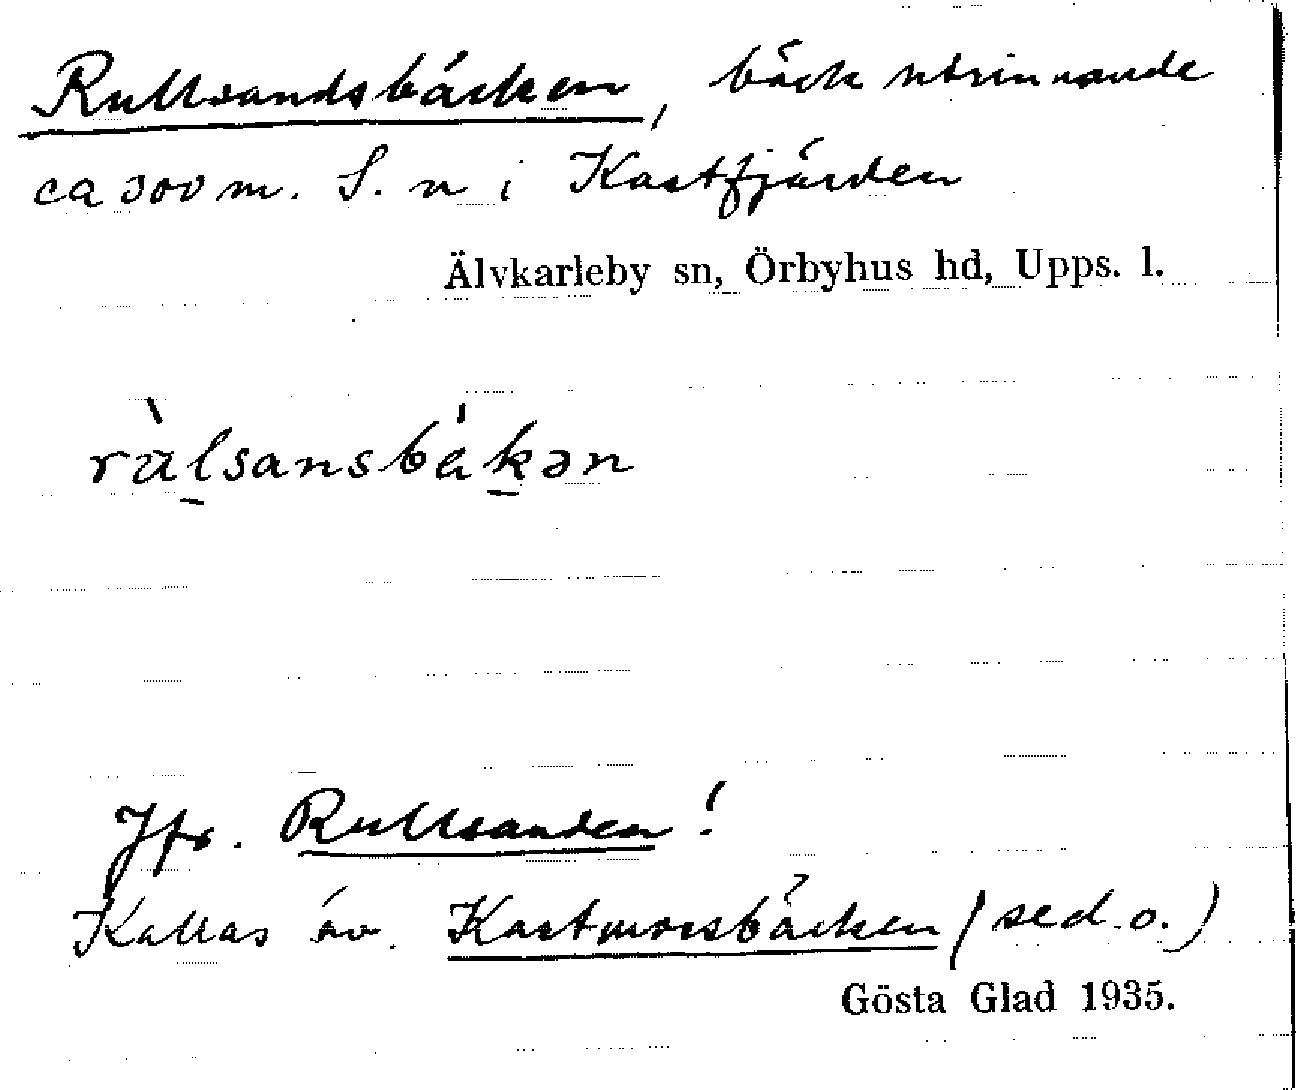 Rullsandsbäcken, bäck utrinnande
ca 300 m. S. n i Kastfjärden
Älvkarleby sn, Örbyhus hd, Upps. l.
ràlsansbákən
Jfr. Rullsanden!
Kallas äv. Kastmorsbäcken (se d. o.)
Gösta Glad 1935.